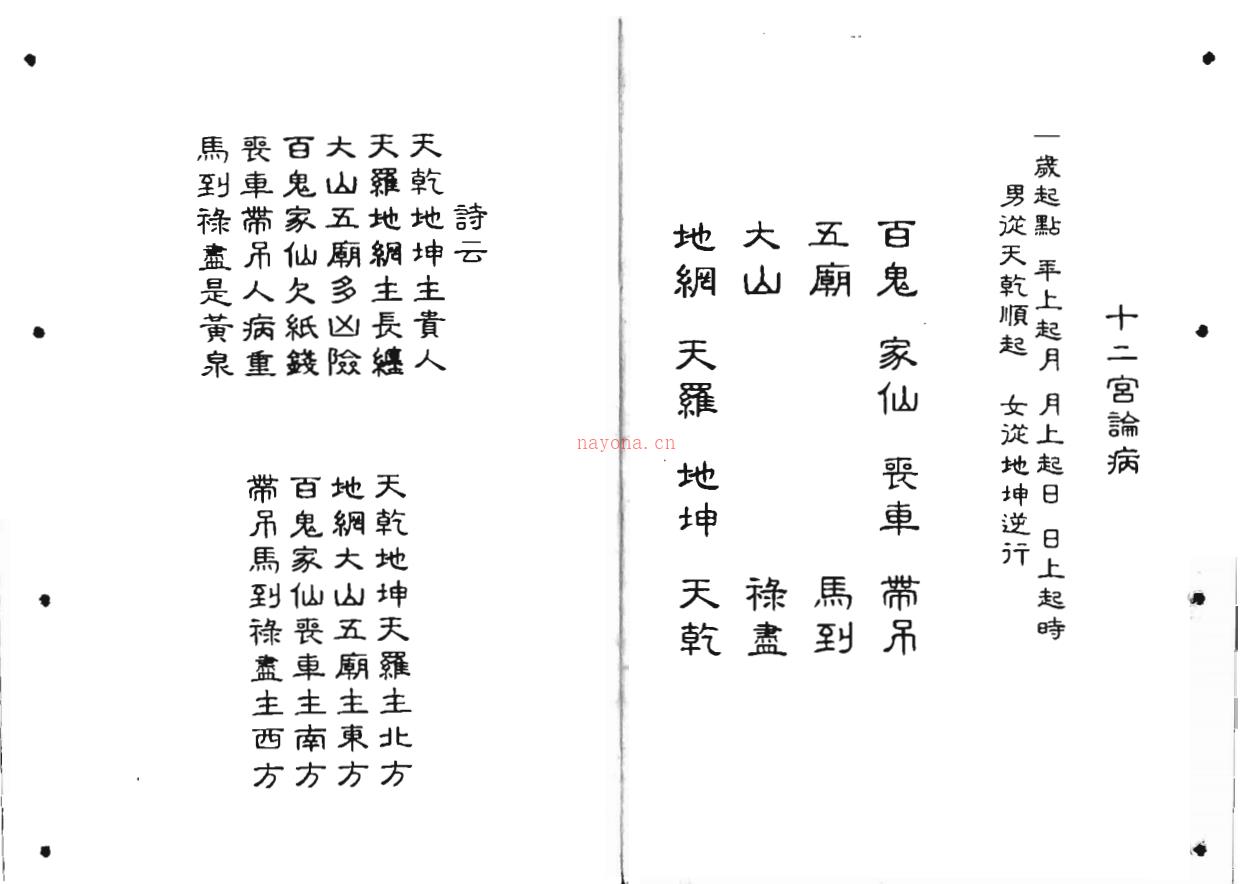 十二宮論病
一歲起點 年上起月 月上起日 日上起時
男從天乾順起 女從地坤逆行
百鬼 家仙 喪車 帶吊
五廟 馬到
大山 祿盡
地網 天羅 地坤 天乾
詩云
天乾地坤主貴人
天羅地網主長纏
大山五廟多凶險
百鬼家仙欠紙錢
喪車帶吊人病重
馬到祿盡是黃泉
天乾地坤天羅主北方
地網大山五廟主東方
百鬼家仙喪車主南方
帶吊馬到祿盡主西方
nayona.cn